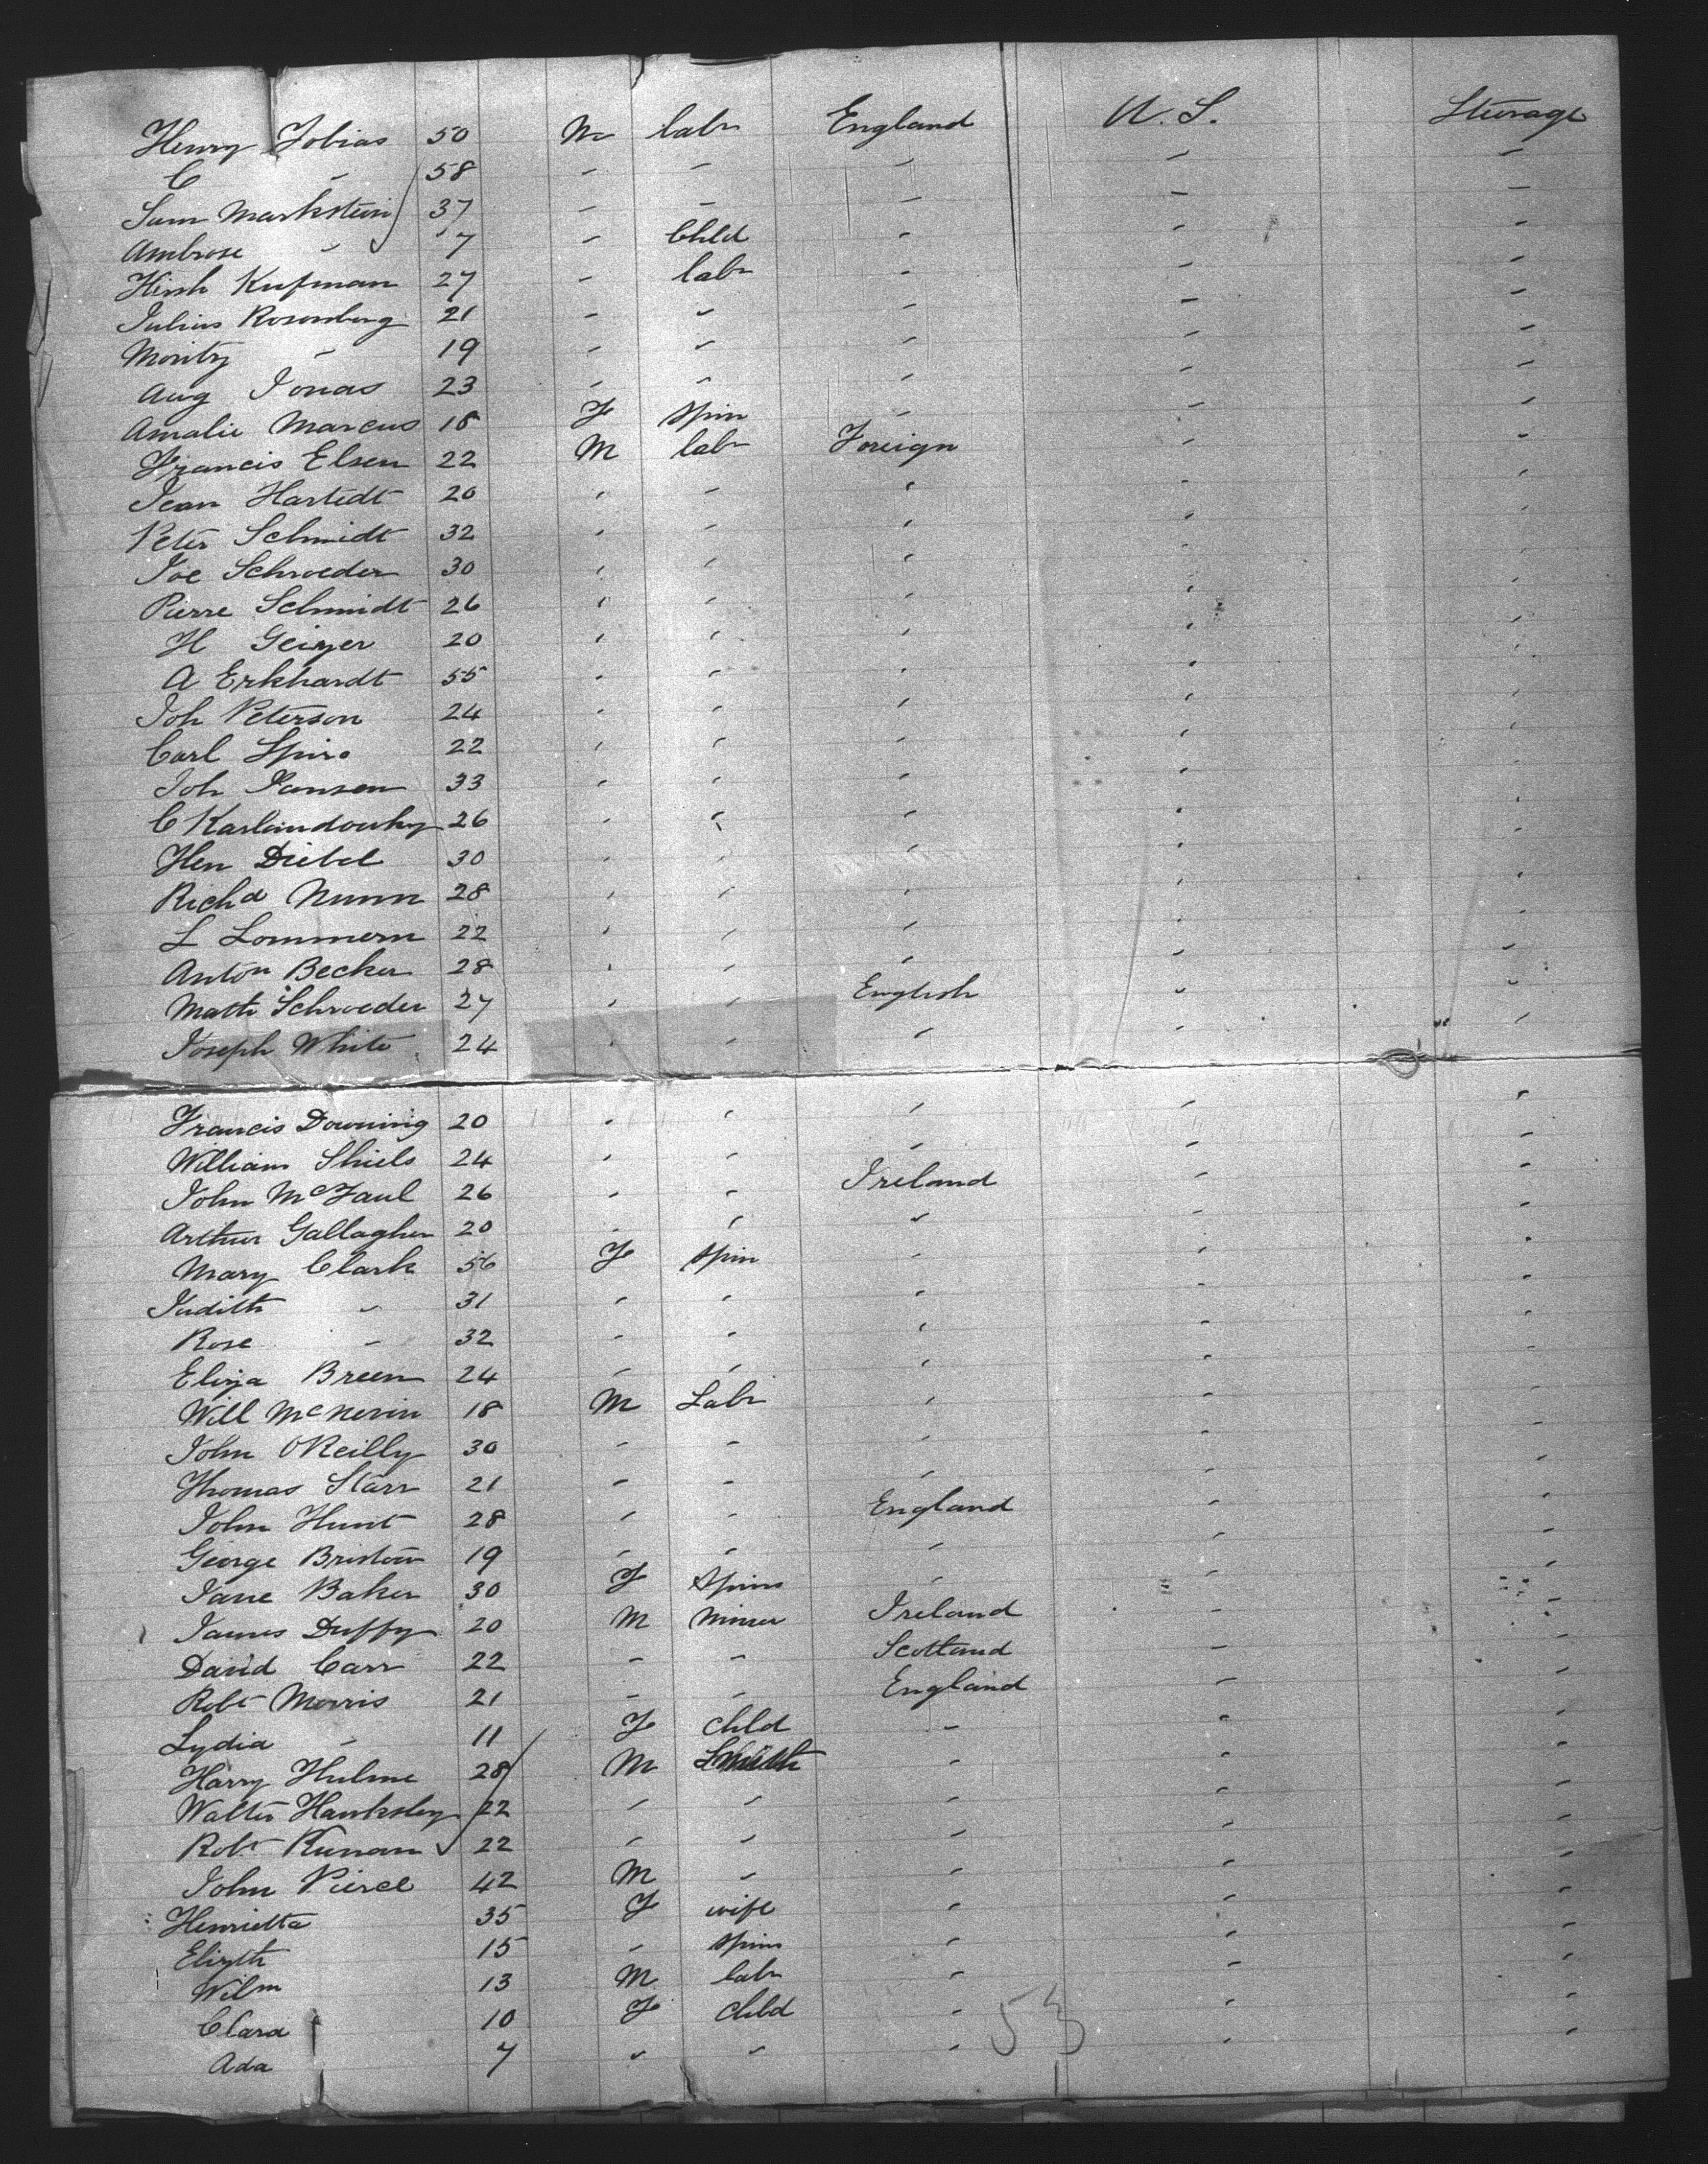 Henry Tobias 50 M labr England U.S. Steerage
C " 58 " " " " "
Sam Markstein 37 " " " " "
Ambrose " 7 " Child " " "
Hirsh Kufman 27 " labr " " "
Julius Rosenberg 21 " " " " "
Moritz " 19 " " " " "
Aug Jonas 23 " " " " "
Amalie Marcus 18 F Spin " " "
Francis Elsen 22 M labr Foreign " "
Jean Hartedt 20 " " " " "
Peter Schmidt 32 " " " " "
Joe Schroeder 30 " " " " "
Pierre Schmidt 26 " " " " "
H Geiger 20 " " " " "
A Erkhardt 55 " " " " "
Joh Peterson 24 " " " " "
Carl Spiro 22 " " " " "
Joh Jansen 33 " " " " "
C Karlandowsky 26 " " " " "
Hen Diebel 30 " " " " "
Richd Nunn 28 " " " " "
L Lommern 22 " " " " "
Anton Becker 28 " " " " "
Math Schroeder 27 " " English " "
Joseph White 24 " " " " "
Francis Downing 20 " " " " "
William Shiels 24 " " " " "
John McFaul 26 " " Ireland " "
Arthur Gallagher 20 " " " " "
Mary Clark 56 F Spin " " "
Judith " 31 " " " " "
Rose " 32 " " " " "
Eliza Breen 24 " " " " "
Will McNevin 18 M Labr " " "
John O'Reilly 30 " " " " "
Thomas Starr 21 " " " " "
John Hunt 28 " " England " "
George Bristow 19 " " " " "
Jane Baker 30 F Spins " " "
James Duffy 20 M Miner Ireland " "
David Carr 22 " " Scotland " "
Robt Morris 21 " " England " "
Lydia " 11 F Chld " " "
Harry Hulme 28 M Smith " " "
Walter Hanksley 22 " " " " "
Robt Kunan 22 " " " " "
John Pierce 42 M " " " "
Henrietta 35 F wife " " "
Elizth 15 " spins " " "
Wilm 13 M labr " " "
Clara 10 F Child " " "
Ada 7 " " " " "
53